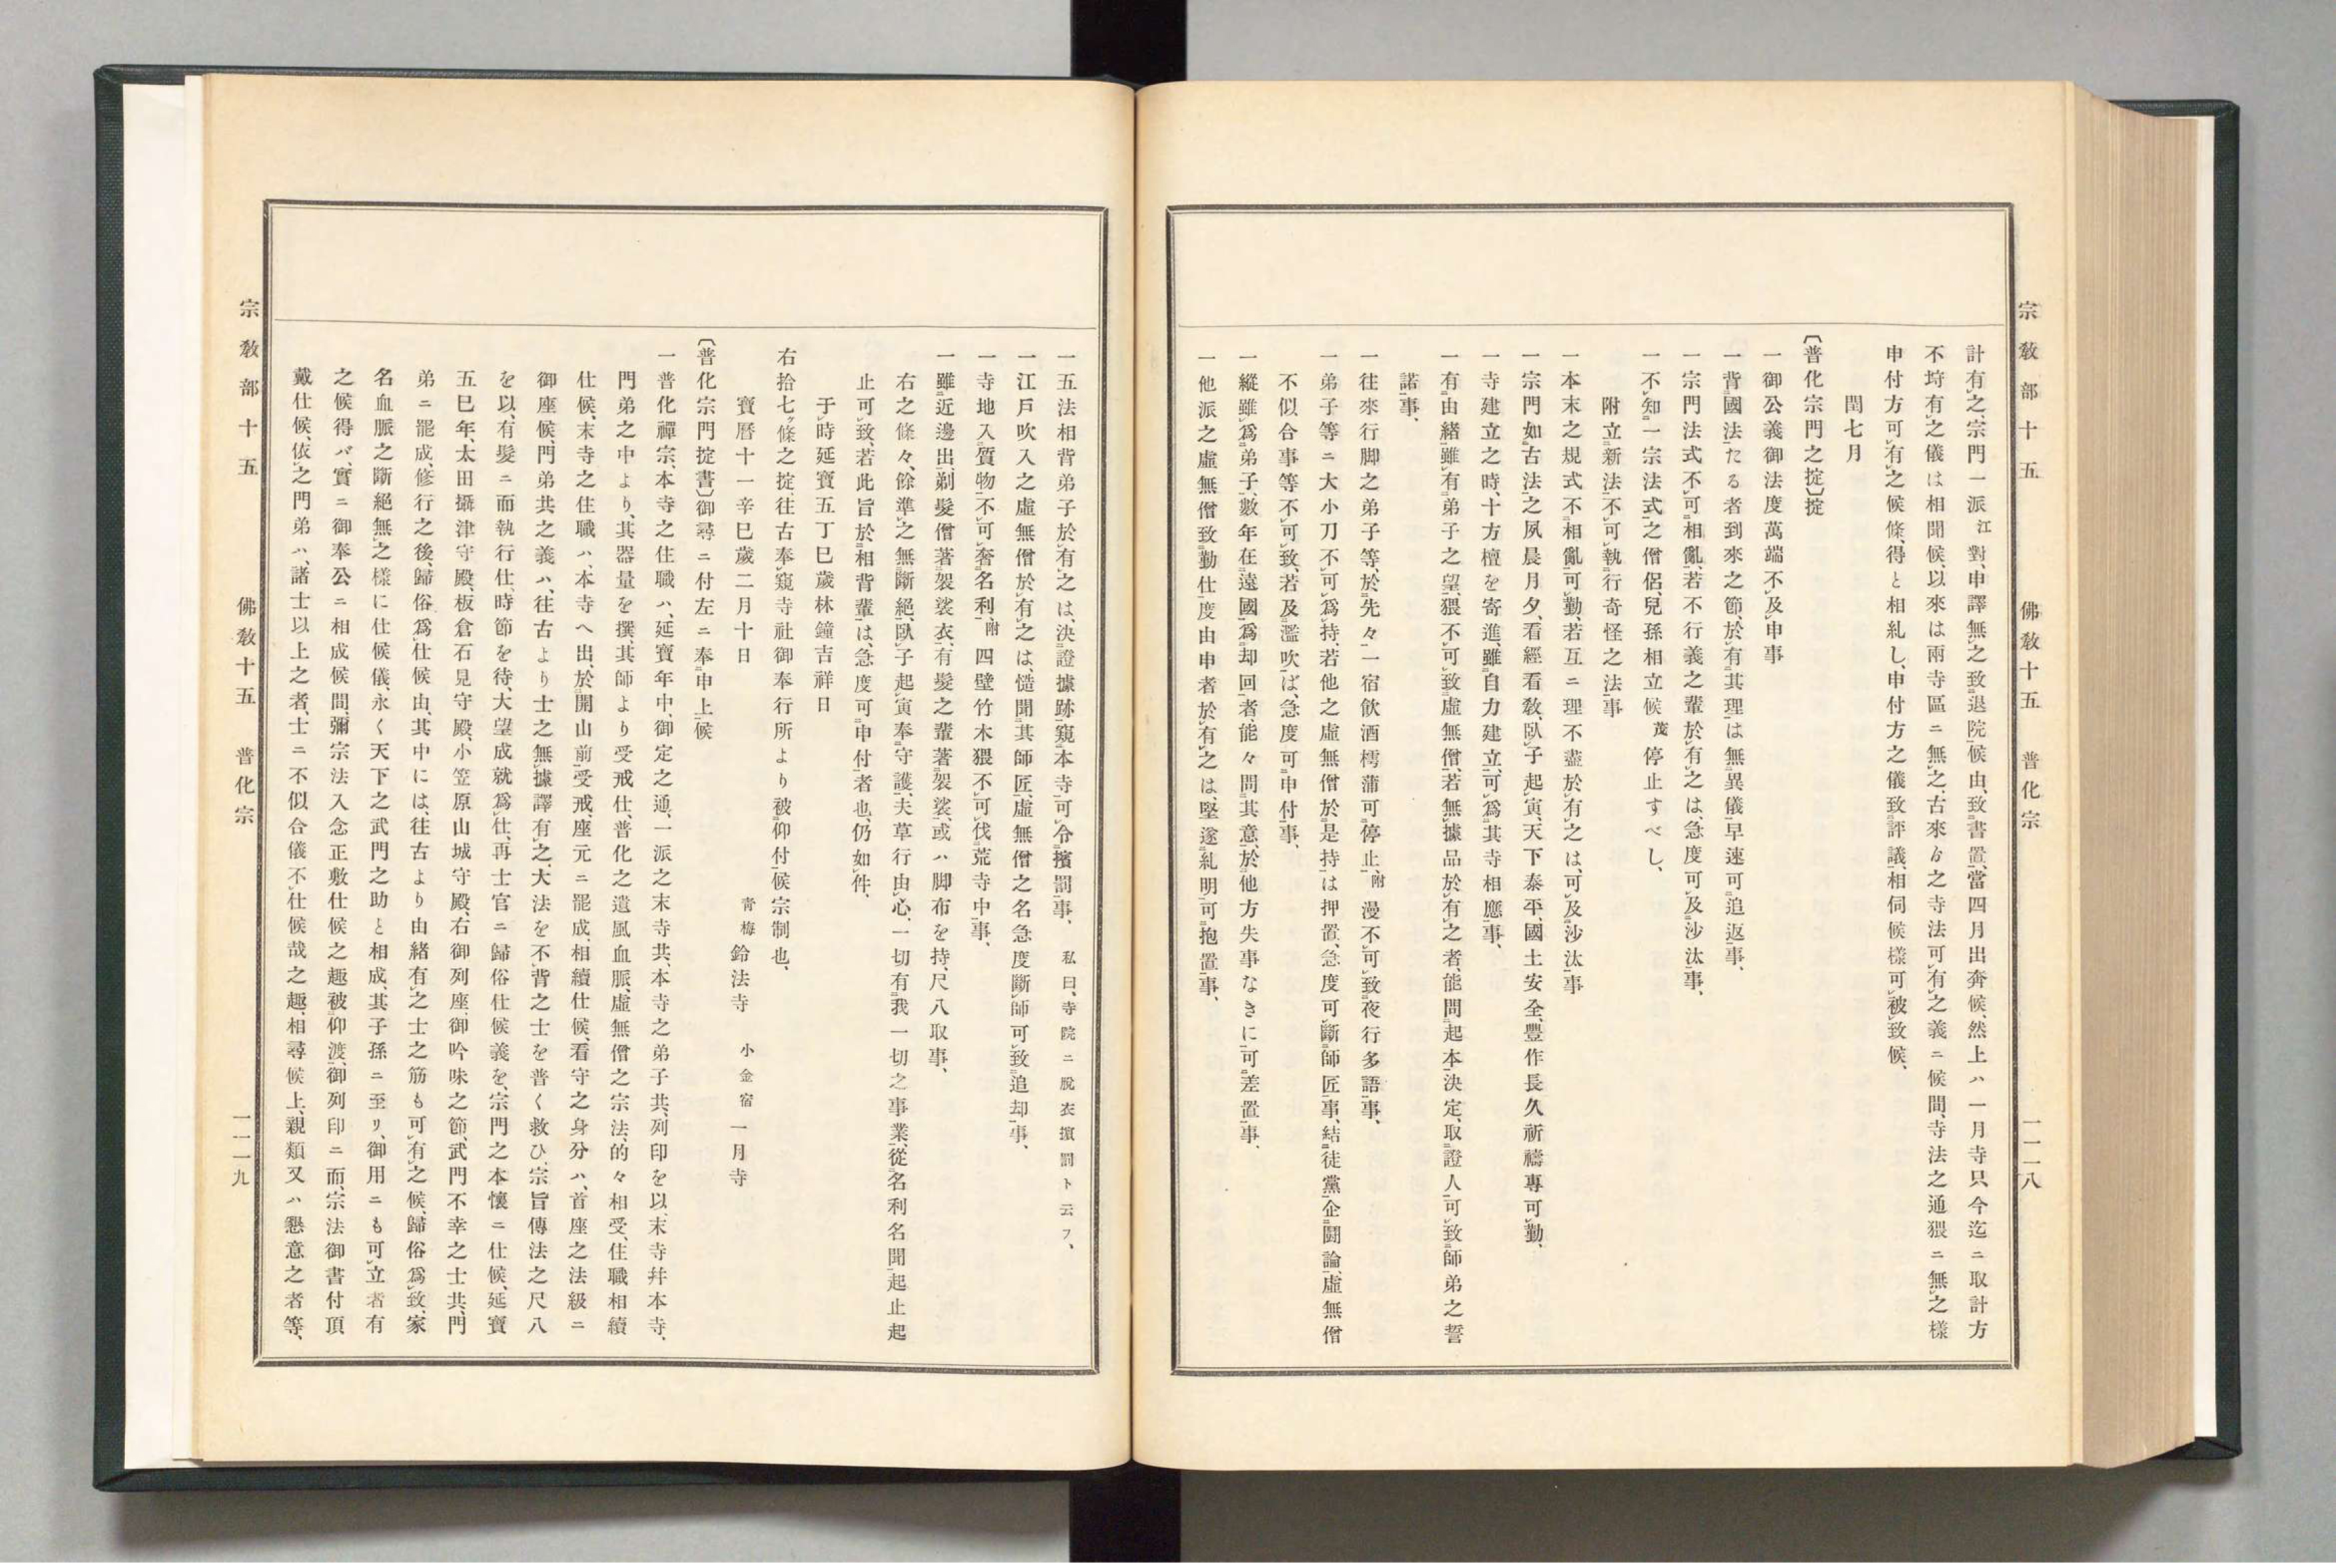 宗教部十五　佛教十五　普化宗　一一一八
計有㆑之、宗門一派江對、申譯無㆑之致㆓退院㆒候由、致㆓書置㆒、當四月出奔候、然上ハ一月寺只今迄ニ取計方
不埒有㆑之儀は相聞候、以來は兩寺區ニ無㆑之、古來ゟ之寺法可㆑有㆑之義ニ候間、寺法之通猥ニ無㆑之樣
申付方可㆑有㆑之候條、得と相糺し、申付方之儀致㆓評議㆒、相伺候樣可㆑被㆑致候、
閏七月
〔普化宗門之掟〕掟
一御公義御法度萬端不㆑及㆑申事
一背㆓國法㆒たる者到來之節、於㆑有㆓其理㆒は無㆓異儀㆒早速可㆓追返㆒事、
一宗門法式不㆑可㆓相亂㆒、若不行義之輩於㆑有㆑之は、急度可㆑及㆓沙汰㆒事、
一不㆑知㆓一宗法式㆒之僧侶、兒孫相立候茂停止すべし、
附立㆓新法㆒、不㆑可㆑執㆓行奇怪之法㆒事
一本末之規式不㆓相亂㆒可㆑勤、若互ニ理不盡於㆑有㆑之は、可㆑及㆓沙汰㆒事
一宗門如㆓古法㆒之夙晨月夕、看經看敎、臥㆑子起㆑寅、天下泰平、國土安全、豐作長久祈禱專可㆑勤、
一寺建立之時、十方檀を寄進、雖㆓自力建立㆒、可㆑爲㆓其寺相應㆒事、
一有㆓由緒㆒雖㆑有㆓弟子之望㆒、猥不㆑可㆑致㆓虛無僧㆒、若無㆑據品於㆑有㆑之者、能問㆓起本㆒決定、取㆓證人㆒可㆑致㆓師弟之誓
諾㆒事、
一往來行脚之弟子等、於㆓先々㆒一宿飮酒樗蒲可㆓停止㆒、附漫不㆑可㆑致㆓夜行多語㆒事、
一弟子等ニ大小刀不㆑可㆑爲㆑持、若他之虛無僧於㆓是持㆒は押置、急度可㆑斷㆓師匠㆒事、結㆓徒黨㆒企㆓鬪論㆒、虛無僧
不似合事等不㆑可㆑致、若及㆓濫吹㆒ば、急度可㆓申付㆒事、
一縱雖㆑爲㆓弟子㆒、數年在㆓遠國㆒、爲㆓却回㆒者、能々問㆓其意㆒、於㆓他方失事なきに㆒可㆓差置㆒事、
一他派之虛無僧致㆓勤仕㆒度由申者於㆑有㆑之は、堅遂㆓糺明㆒可㆓抱置㆒事、
一五法相背弟子於㆑有㆑之は、決㆓證據跡㆒窺㆓本寺㆒、可㆑令㆓擯罰㆒事、　私曰、寺院ニ脫衣擯罰ト云フ、
一江戶吹入之虛無僧於㆑有㆑之は、慥聞㆓其師匠㆒、虛無僧之名急度斷㆑師可㆑致㆓追却㆒事、
一寺地入㆓質物㆒、不㆑可㆑奢㆓名利㆒、附四壁竹木猥不㆑可㆑伐㆓荒寺中㆒事、
一雖㆓近邊出㆒、剃髮僧著㆓袈裟衣㆒、有髮之輩著㆓袈裟㆒、或ハ脚布を持、尺八取事、
右之條々、餘準㆑之無㆓斷絕㆒、臥㆑子起㆑寅奉㆓守護㆒、夫草行由㆑心、一切有㆓我一切之事業㆒、從㆓名利名聞㆒起止起
止可㆑致、若此旨於㆓相背輩㆒は、急度可㆓申付㆒者也、仍如㆑件、
于㆑時延寶五丁巳歲林鐘吉祥日
右拾七ケ條之掟、往古奉㆑窺寺社御奉行所より被㆓仰付㆒候宗制也、
寶曆十一辛巳歲二月十日　靑梅　鈴法寺　小金宿　一月寺
〔普化宗門掟書〕御尋ニ付左ニ奉㆓申上㆒候
一普化禪宗、本寺之住職ハ、延寶年中、御定之通、一派之末寺共、本寺之弟子共、列印を以、末寺幷本寺、
門弟之中より、其器量を撰、其師より受戒仕、普化之遺風血脈、虛無僧之宗法、的々相受、住職相續
仕候、末寺之住職ハ、本寺へ出、於㆓開山前㆒受戒、座元ニ罷成、相續仕候、看守之身分ハ、首座之法級ニ
御座候、門弟共之義ハ、往古より士之無㆑據譯有㆑之、大法を不㆑背之士を普く救ひ、宗旨傳法之尺八
を以、有髮ニ而執行仕、時節を待、大望成就爲㆑仕、再士官ニ歸俗仕候義を、宗門之本懷ニ仕候、延寶
五巳年、太田攝津守殿、板倉石見守殿、小笠原山城守殿、右御列座、御吟味之節、武門不幸之士共、門
弟ニ罷成、修行之後、歸俗爲㆑仕候由、其中には、往古より由緒有㆑之士之筋も可㆑有㆑之候、歸俗爲㆑致、家
名血脈之斷絕無㆑之樣に仕候儀、永く天下之武門之助と相成、其子孫ニ至リ、御用ニも可㆑立者有
之候得バ、實ニ御奉公ニ相成候間、彌宗法入㆑念正敷仕候之趣、被㆓仰渡㆒、御列印ニ而、宗法御書付頂
戴仕候、依㆑之門弟ハ、諸士以上之者、士ニ不似合儀不㆑仕候哉之趣、相尋候上、親類又ハ懇意之者等、
宗教部十五　佛教十五　普化宗　一一一九